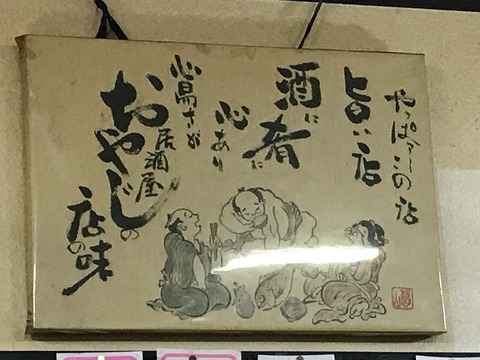 やっぱァーこの店
旨い店
酒に肴に
心あり
心易さが
居酒屋
おやじの
店の味